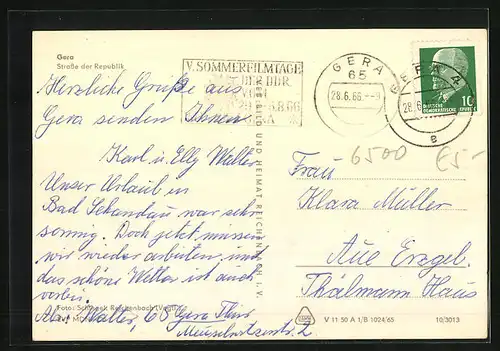 Gera
Straße der Republik
V. SOMMERFILMTAGE
DER DDR
GERA
65
28.6.66.-9
GERA 4
28.6.
a
10
DEUTSCHE
DEMOKRATISCHE REPUBLIK
Herzliche Grüße aus
Gera senden Ihnen
Karl u. Elly Walter
Unser Urlaub in
Bad Schandau war sehr
sonnig. Doch jetzt müssen
wir wieder arbeiten, und
das schöne Wetter ist auch
vorbei.
Abs. Walter, 65 Gera Thür
2
BILD UND HEIMAT REICHENBACH I. V.
6500
€5,-
Frau
Klara Müller
Aue Erzgeb.
Thälmann Haus
Foto: Reichenbach (Vogtl.)
V 11 50 A 1/B 1024/65
10/3013